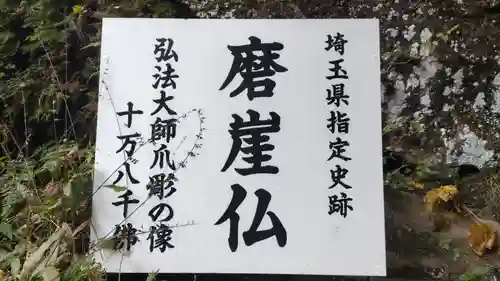 埼玉県指定史跡
磨崖仏
弘法大師爪彫の像
十万八千佛